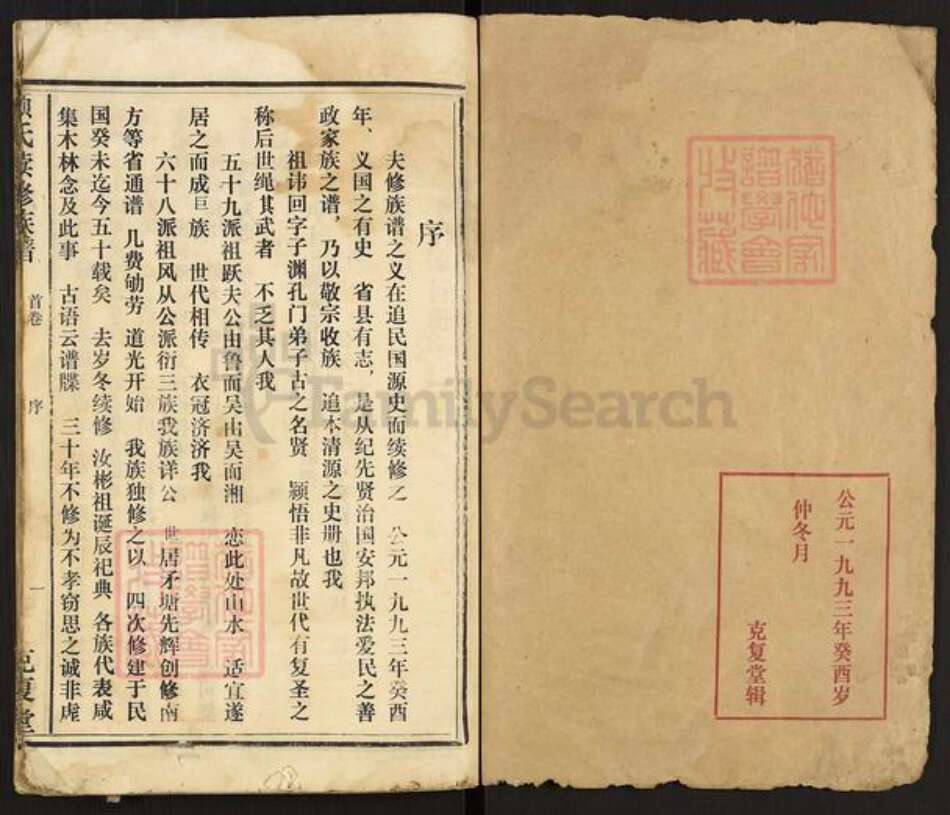 猶他家
譜學會
收藏
公元一九九三年癸酉岁
仲冬月
克复堂辑
序
夫修族谱之义在追民国源史而续修之 公元一九九三年癸酉
年、义国之有史 省县有志，是从纪先贤治国安邦执法爱民之善
政家族之谱，乃以敬宗收族 追本清源之史册也我
祖讳回字子渊孔门弟子古之名贤 颖悟非凡故世代有复圣之
称后世绳其武者 不乏其人我
五十九派祖跃夫公由鲁而吴由吴而湘 恋此处山水 适宜遂
居之而成巨族 世代相传 衣冠济济我
六十八派祖风从公派衍三族我族详公 世居矛塘先辉创修南
方等省通谱 几费劬劳 道光开始 我族独修之以 四次修建于民
国癸未迄今五十载矣 去岁冬续修 汝彬祖诞辰祀典 各族代表咸
集木林念及此事 古语云谱牒 三十年不修为不孝窃思之诚非虚
氏续修族谱 首卷 序 一 克复堂
FamilySearch